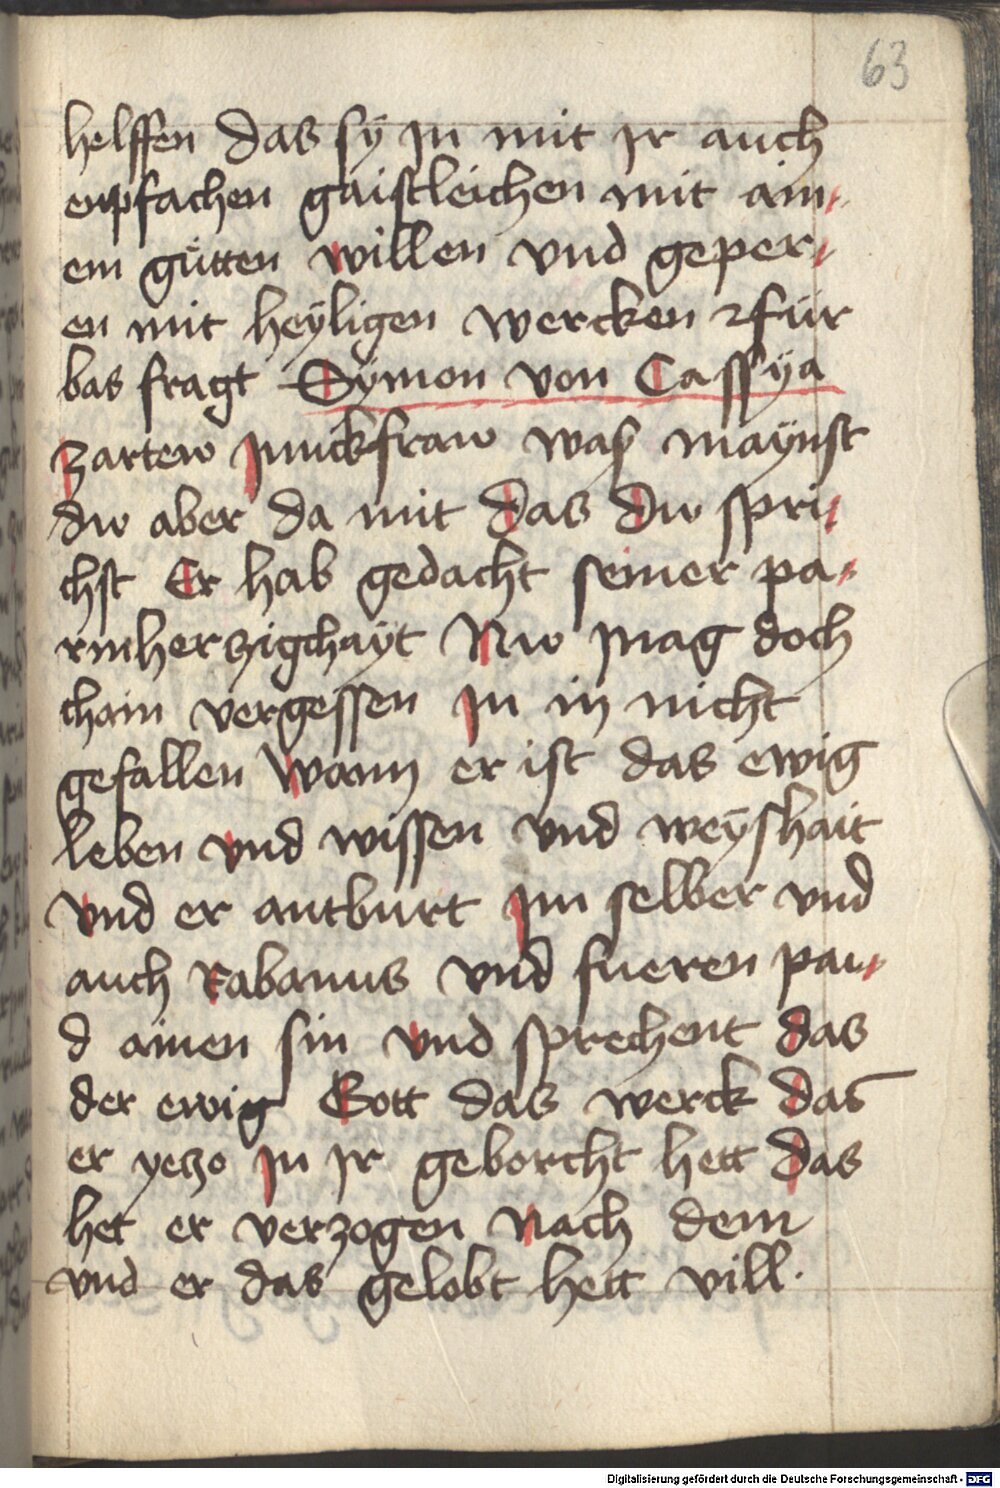 63
helffen das sÿ Jn mit Jr auch
enpfachen gaistleichen mit aim-
em gütten willen vnd geper-
en mit heÿligen wercken für
bas fragt Sÿmon von Cassÿa
zartew Junckfraw waß maÿnst
dw aber da mit das dw spri-
chst Er hab gedacht seiner pa-
rmherzigchaÿt Nw mag doch
chain vergessen Jn in nicht
gefallen Wann er ist das ewig
leben vnd wissen vnd weÿshait
vnd er antburt Jm selber vnd
auch Rabanus vnd fueren pai-
d ainen sin vnd sprechent das
der ewig Gott das werck das
er yeczo Jn Jr geborcht hett das
het er verzogen Nach dem
vnd er das gelobt hett vill.
Digitalisierung gefördert durch die Deutsche Forschungsgemeinschaft - DFG